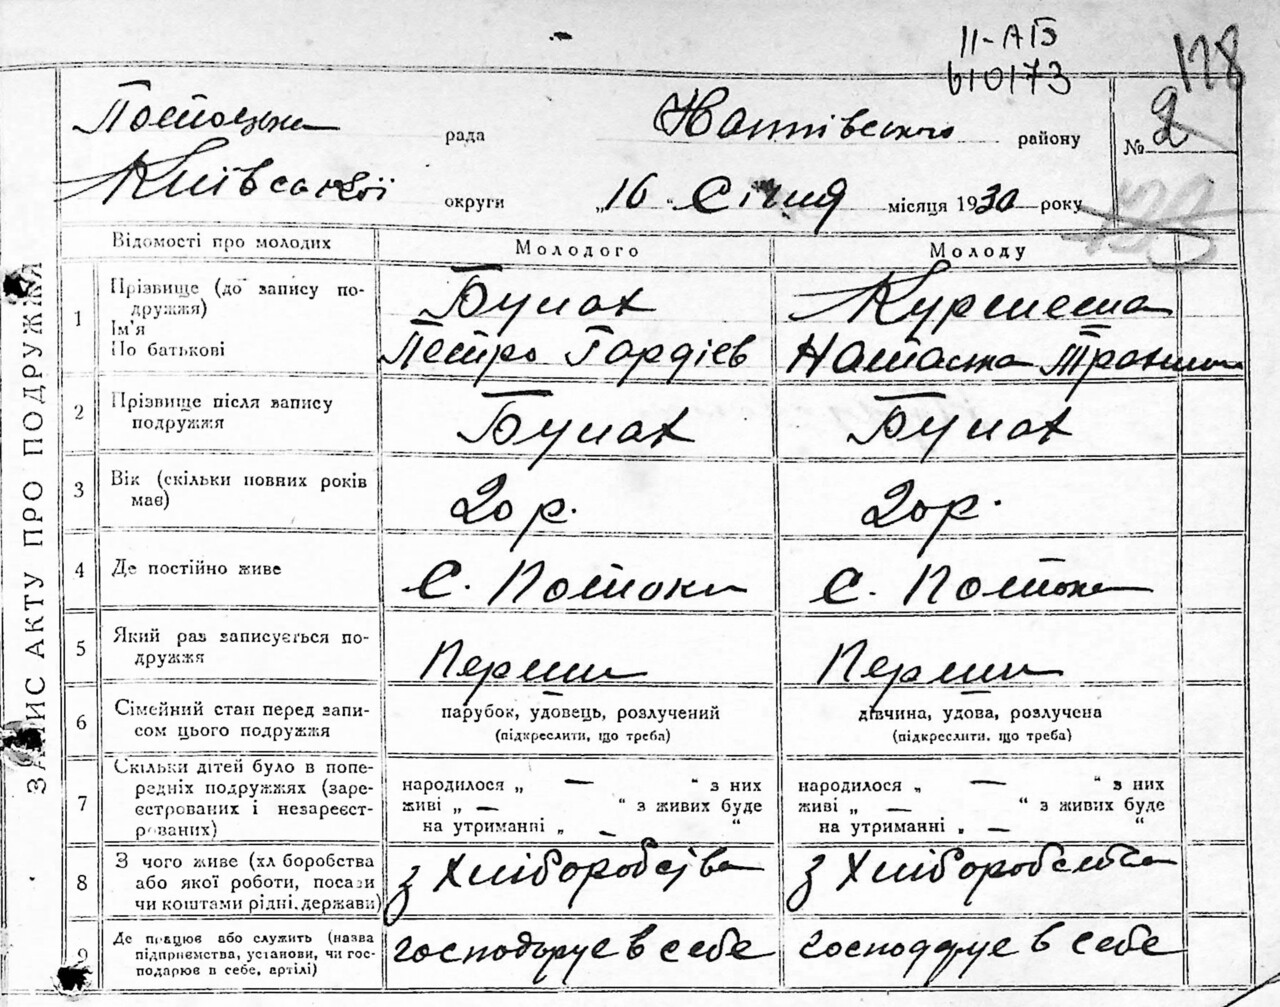 II-АБ
610173
128
Потоцька рада району № 2
Київської округи „16" Січня місяця 1930 року
ЗАПИС АКТУ ПРО ПОДРУЖЖЯ
Відомості про молодих Молодого Молоду
1 Прізвище (до запису по-
дружжя)
Ім'я
По батькові
Петро Гордієв Настаська
2 Прізвище після запису
подружжя
3 Вік (скільки повних років
має)
20 р. 20 р.
4 Де постійно живе с. Потоки с. Потоки
5 Який раз записується по-
дружжя
Перши Перши
6 Сімейний стан перед запи-
сом цього подружжя
парубок, удовець, розлучений дівчина, удова, розлучена
(підкреслити, що треба) (підкреслити, що треба)
7 Скільки дітей було в попе-
редніх подружжях (заре-
єстрованих і незареєст-
рованих)
народилося „ — " з них народилося „ — " з них
живі „ — " з живих буде живі „ — " з живих буде
на утриманні „ — " на утриманні „ — "
8 З чого живе (хліборобства
або якої роботи, посади
чи коштами рідні, держави)
з Хліборобства з Хліборобства
9 Де працює або служить (назва
підприємства, установи, чи гос-
подарює в себе, артілі)
в себе в себе